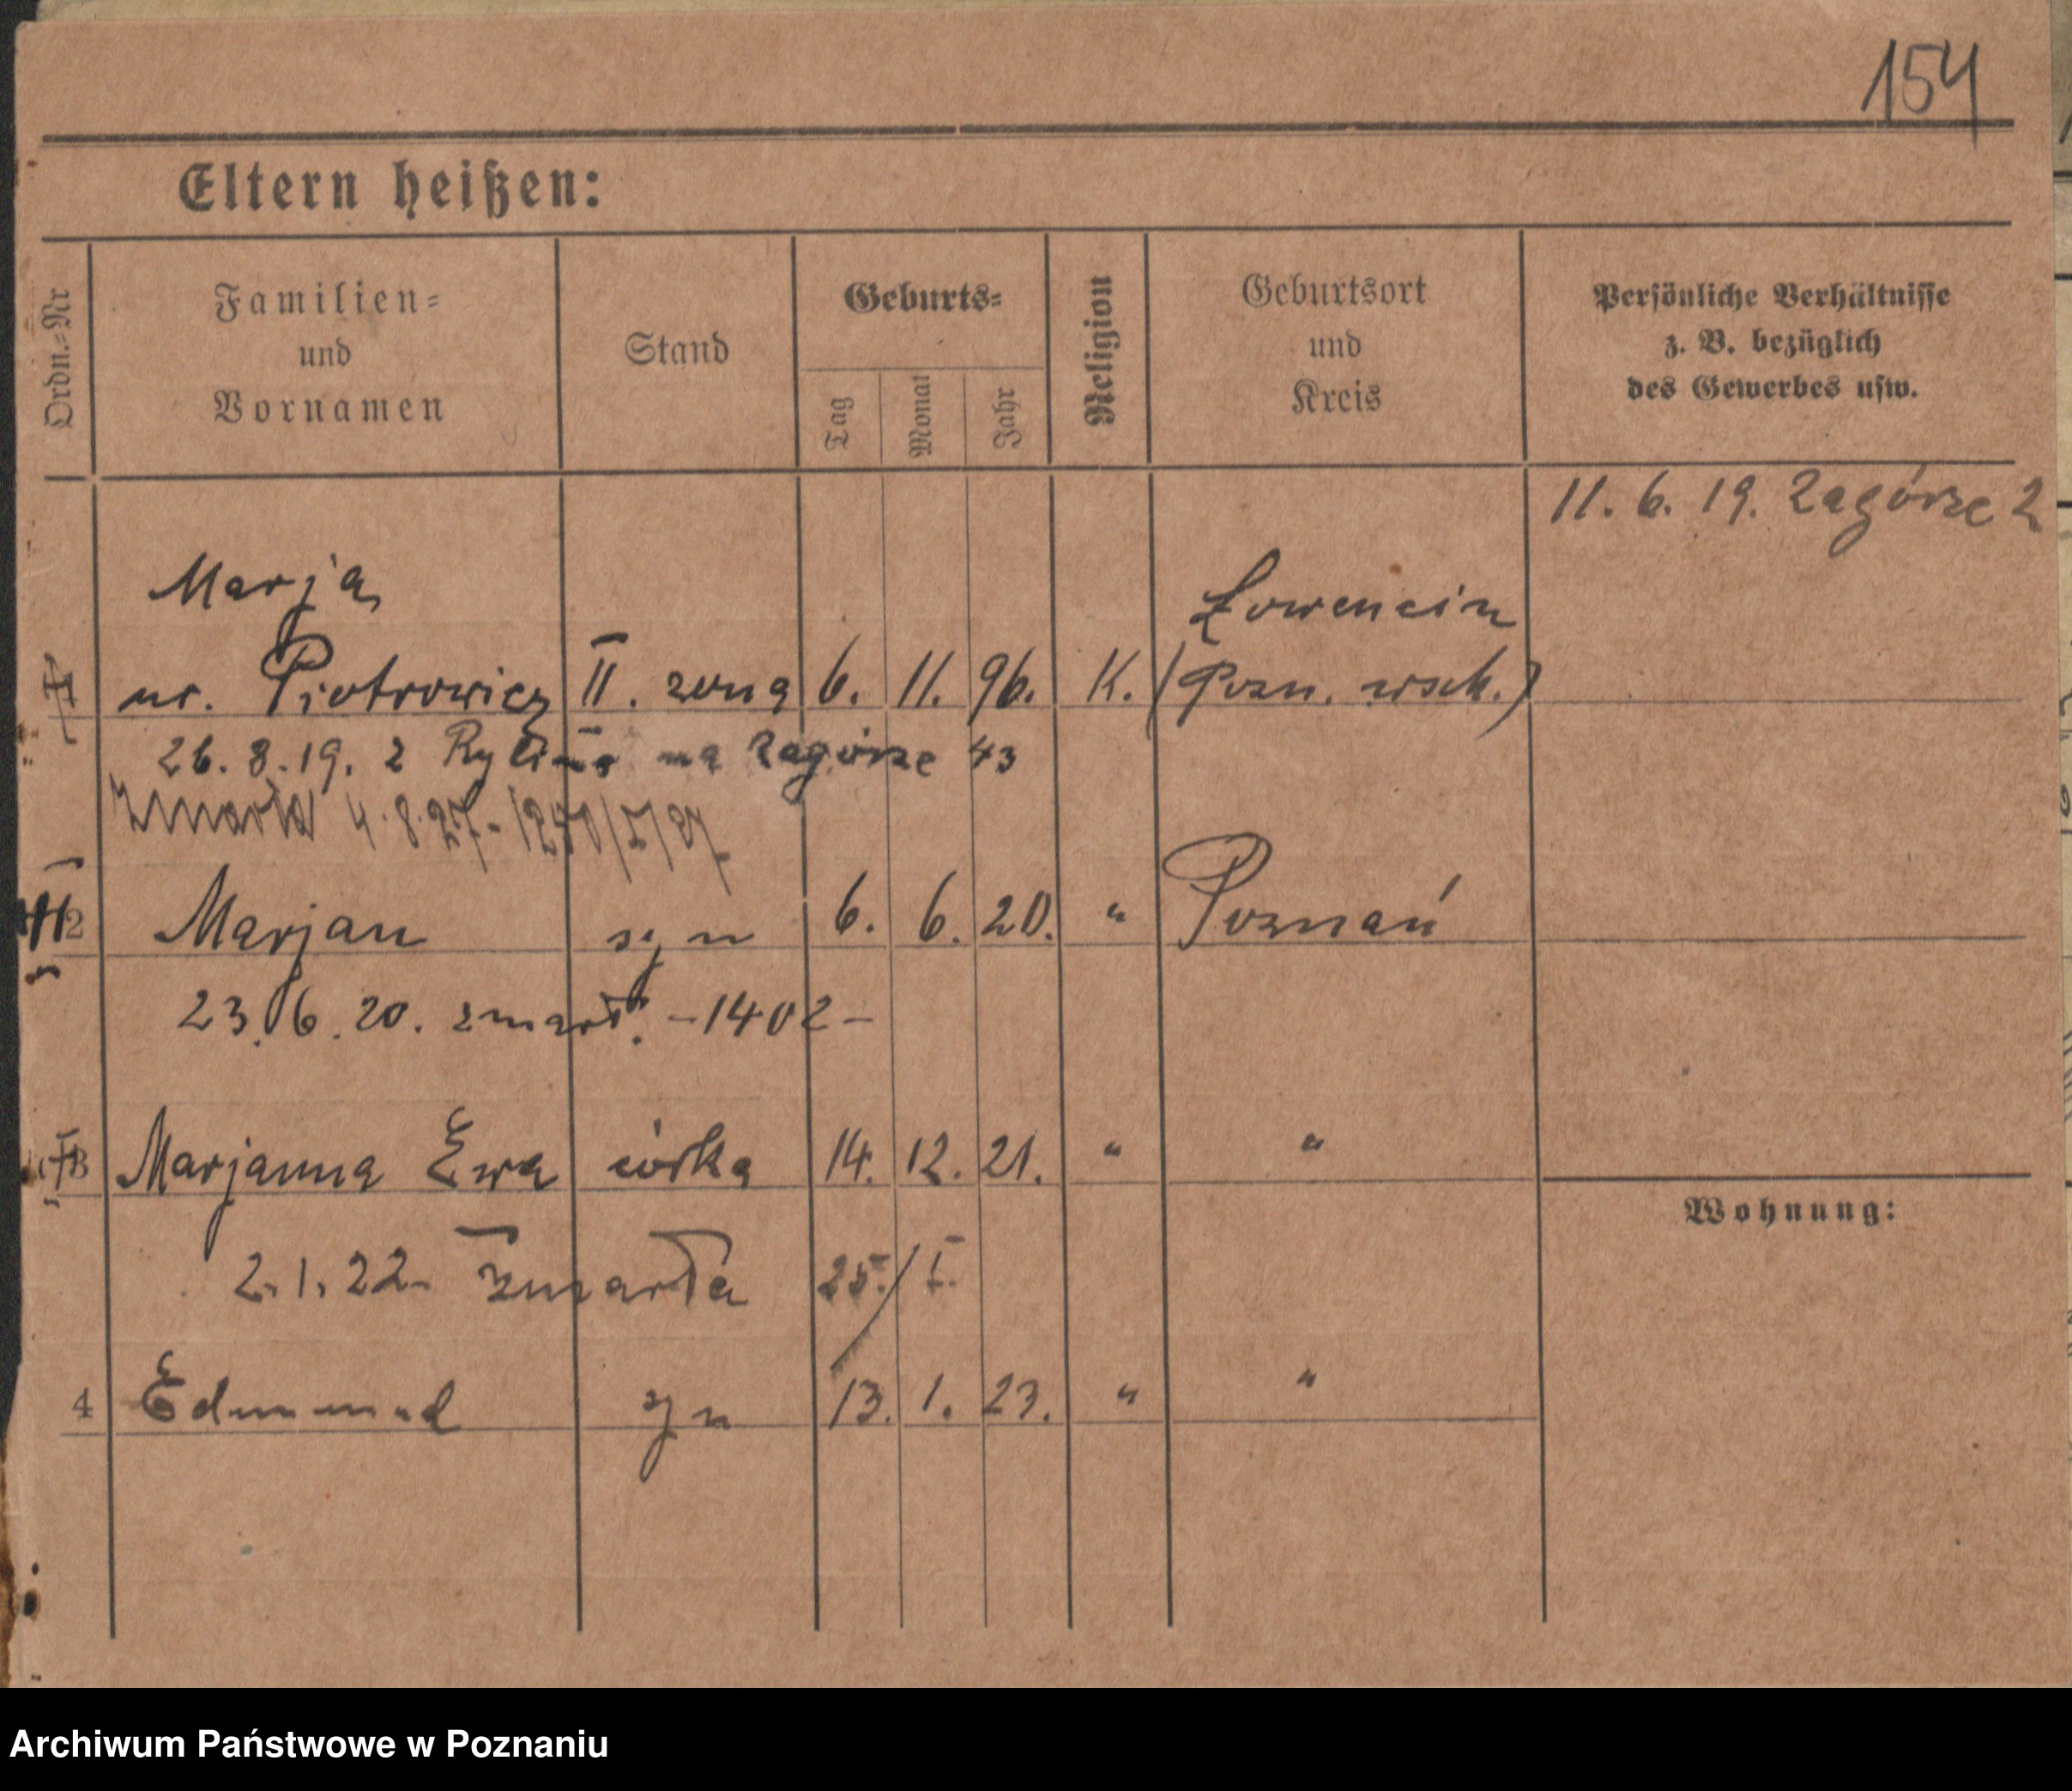 154
Eltern heißen:
Ordn.=Nr
Familien=
und
Vornamen
Stand
Geburts=
Tag
Monat
Jahr
Religion
Geburtsort
und
Kreis
Persönliche Verhältnisse
z. B. bezüglich
des Gewerbes usw.
11. 6. 19. Zagórze 2
Marja
ur. Piotrowicz II. żona 6. 11. 96. K. Łowencin (Pozn. wsch.)
26. 8. 19. z na Zagórze 43
Zmarła 4.8.27.
2 Marjan syn 6. 6. 20. " Poznań
23.6.20. zmarł. -1402-
3 Marjanna Ewa córka 14. 12. 21. " "
Wohnung:
2.1.22. zmarła 25./I.
4 Edmund syn 13. 1. 23. " "
Archiwum Państwowe w Poznaniu